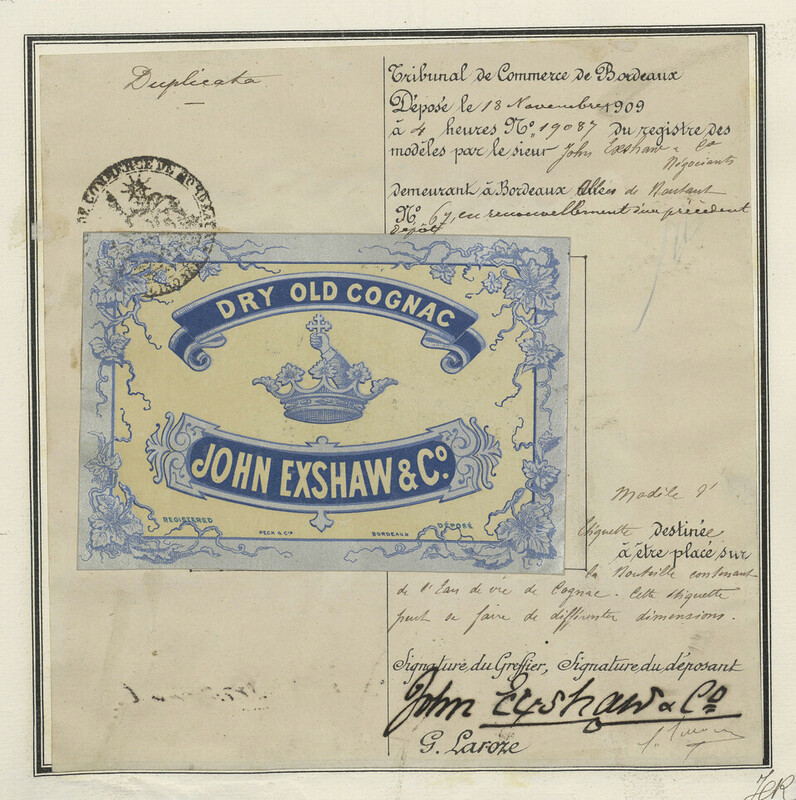 Duplicata
Tribunal de Commerce de Bordeaux
Déposé le 18 Novembre 1909
à 4 heures Nº 19087 du registre des
modèles par le sieur John Exshaw & Co
Négociants
demeurant à Bordeaux Allées de Boutaut
Nº 67, en renouvellement d'un précédent
dépôt
DE COMMERCE DE BORDEAUX
DRY OLD COGNAC
JOHN EXSHAW & Cº
REGISTERED
PECH & Cie
BORDEAUX
DÉPOSÉ
Modèle d'
étiquette destinée
à être placé sur
la Bouteille contenant
de l'Eau de vie de Cognac. Cette étiquette
peut se faire de différentes dimensions.
Signature du Greffier, Signature du déposant
John Exshaw & Co
G. Laroze